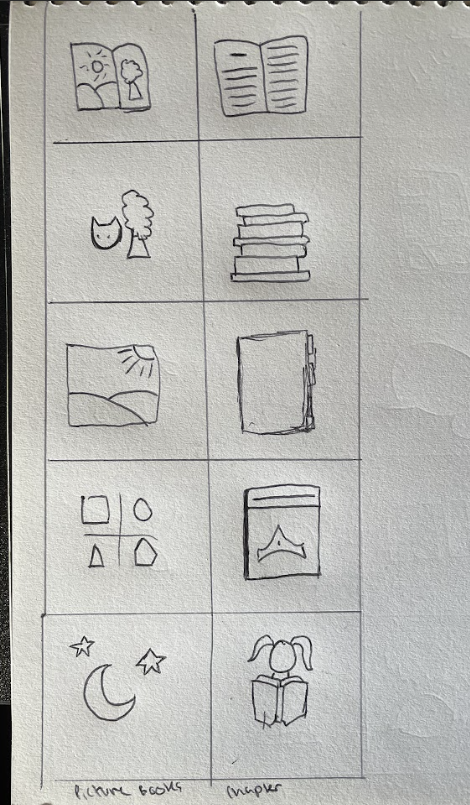 Picture Books chapter